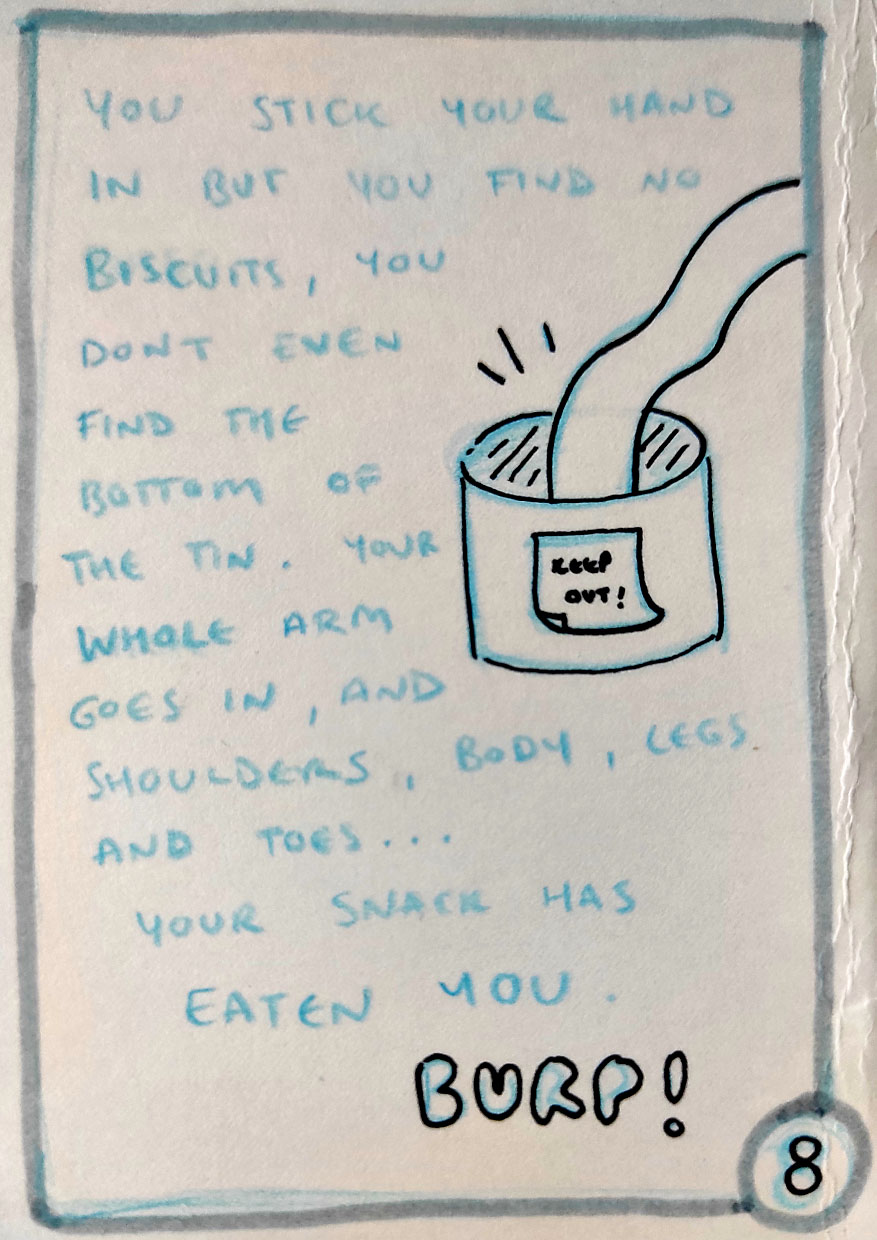 YOU STICK YOUR HAND
IN BUT YOU FIND NO
BISCUITS, YOU
DONT EVEN
FIND THE
BOTTOM OF
THE TIN. YOUR
WHOLE ARM
GOES IN, AND
SHOULDERS, BODY, LEGS
AND TOES...
YOUR SNACK HAS
EATEN YOU.
KEEP
OUT!
BURP!
8